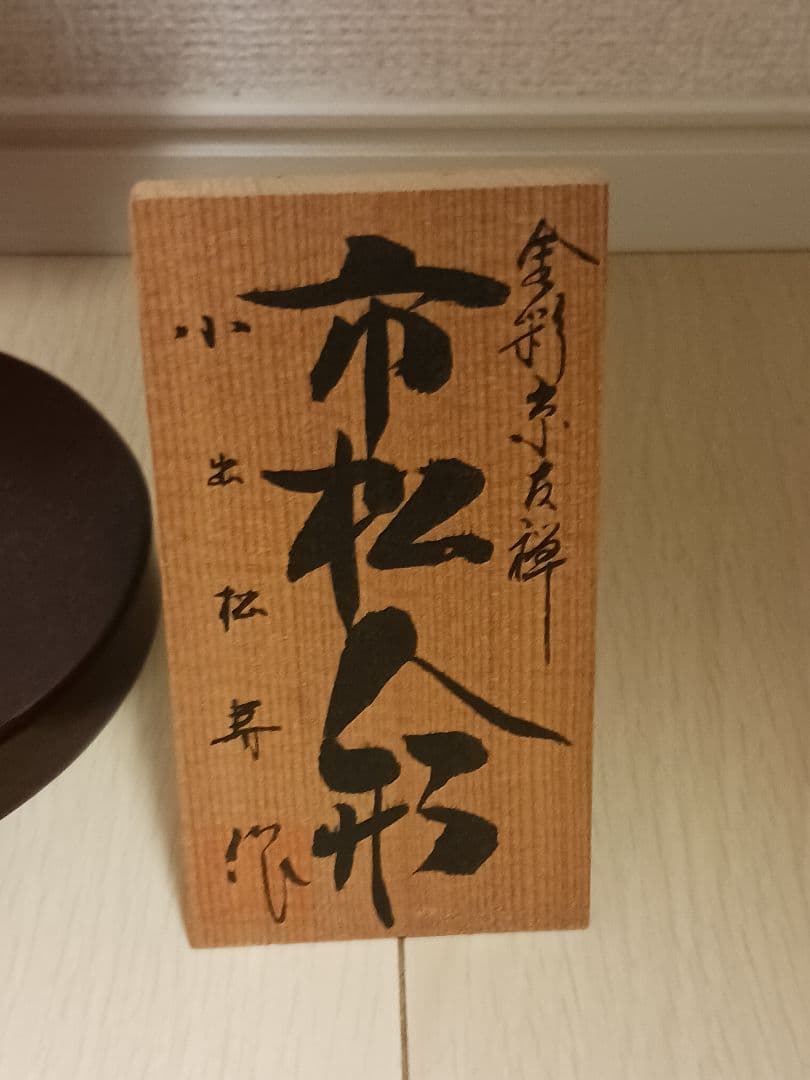 金彩京友禅
市松人形
小出松寿作